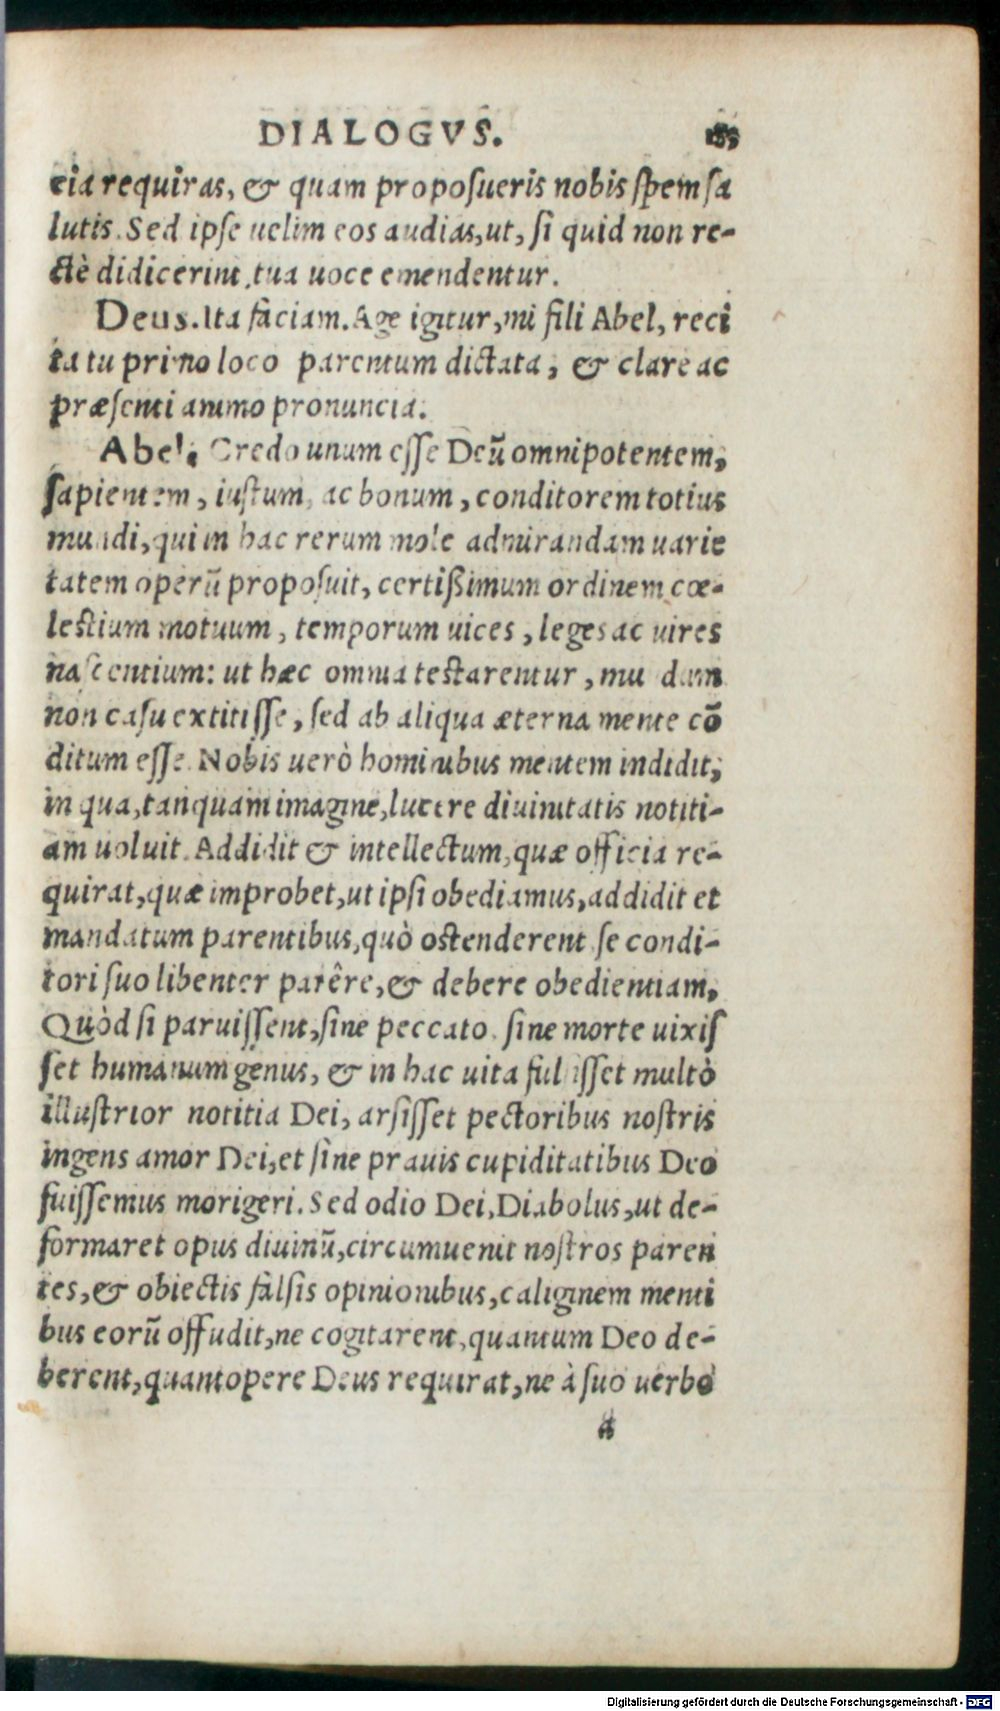 DIALOGVS.
cia requiras, & quam proposueris nobis spem sa
lutis. Sed ipse uelim eos audias, ut, si quid non re-
ctè didicerint, tua uoce emendentur.
Deus. Ita faciam. Age igitur, mi fili Abel, reci
ta tu primo loco parentum dictata, & clare ac
præsenti animo pronuncia.
Abel. Credo unum esse Deū omnipotentem,
sapientem, iustum, ac bonum, conditorem totius
mundi, qui in hac rerum mole admirandam uarie
tatem operū proposuit, certißimum ordinem cœ-
lestium motuum, temporum uices, leges ac uires
nascentium: ut hæc omnia testarentur, mundum
non casu extitisse, sed ab aliqua æterna mente cō
ditum esse. Nobis uerò hominibus mentem indidit,
in qua, tanquam imagine, lucere diuinitatis notiti-
am uoluit. Addidit & intellectum, quæ officia re-
quirat, quæ improbet, ut ipsi obediamus, addidit et
mandatum parentibus, quò ostenderent se condi-
tori suo libenter parêre, & debere obedientiam,
Quòd si paruissent, sine peccato, sine morte uixis
set humanum genus, & in hac uita fulsisset multò
illustrior notitia Dei, arsisset pectoribus nostris
ingens amor Dei, et sine prauis cupiditatibus Deo
fuissemus morigeri. Sed odio Dei, Diabolus, ut de-
formaret opus diuinū, circumuenit nostros paren
tes, & obiectis falsis opinionibus, caliginem menti
bus eorū offudit, ne cogitarent, quantum Deo de-
berent, quantopere Deus requirat, ne à suo uerbo
a
Digitalisierung gefördert durch die Deutsche Forschungsgemeinschaft - DFG